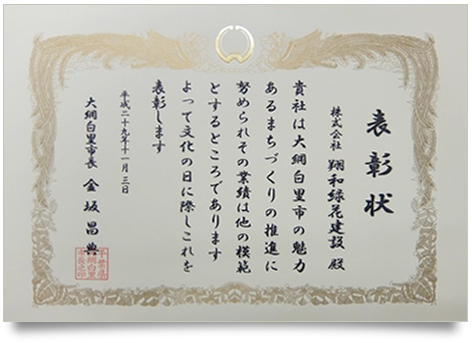 表彰状
株式会社 翔和緑花建設 殿
貴社は大網白里市の魅力
あるまちづくりの推進に
努められその業績は他の模範
とするところであります
よって文化の日に際しこれを
表彰します
平成二十九年十一月三日
大網白里市長 金坂昌典